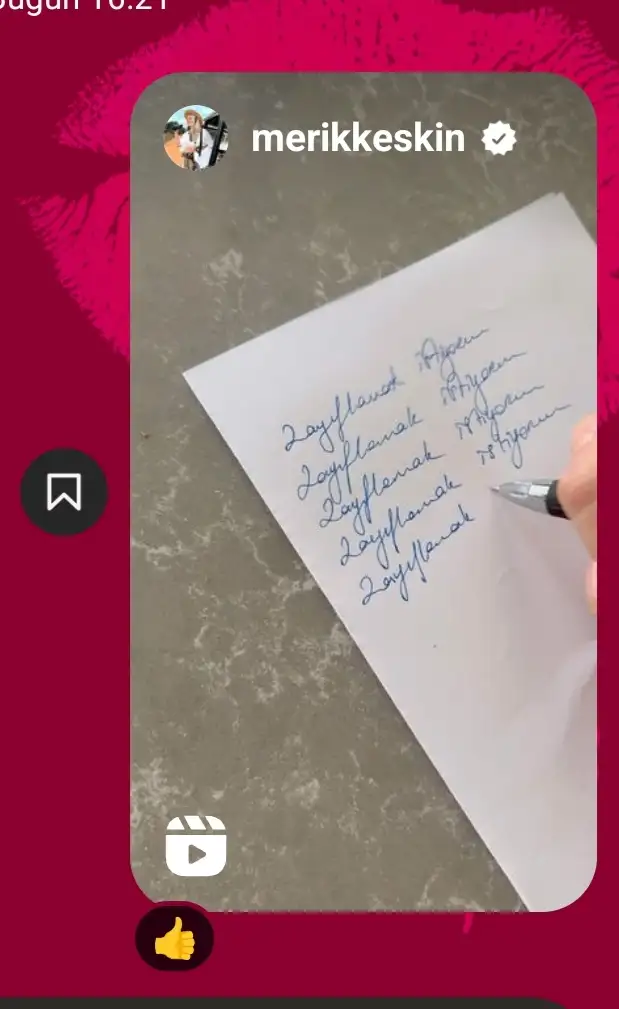 Bugün 16:21
merikkeskin
Zayıflamak istiyorum
Zayıflamak istiyorum
Zayıflamak istiyorum
Zayıflamak istiyorum
Zayıflamak